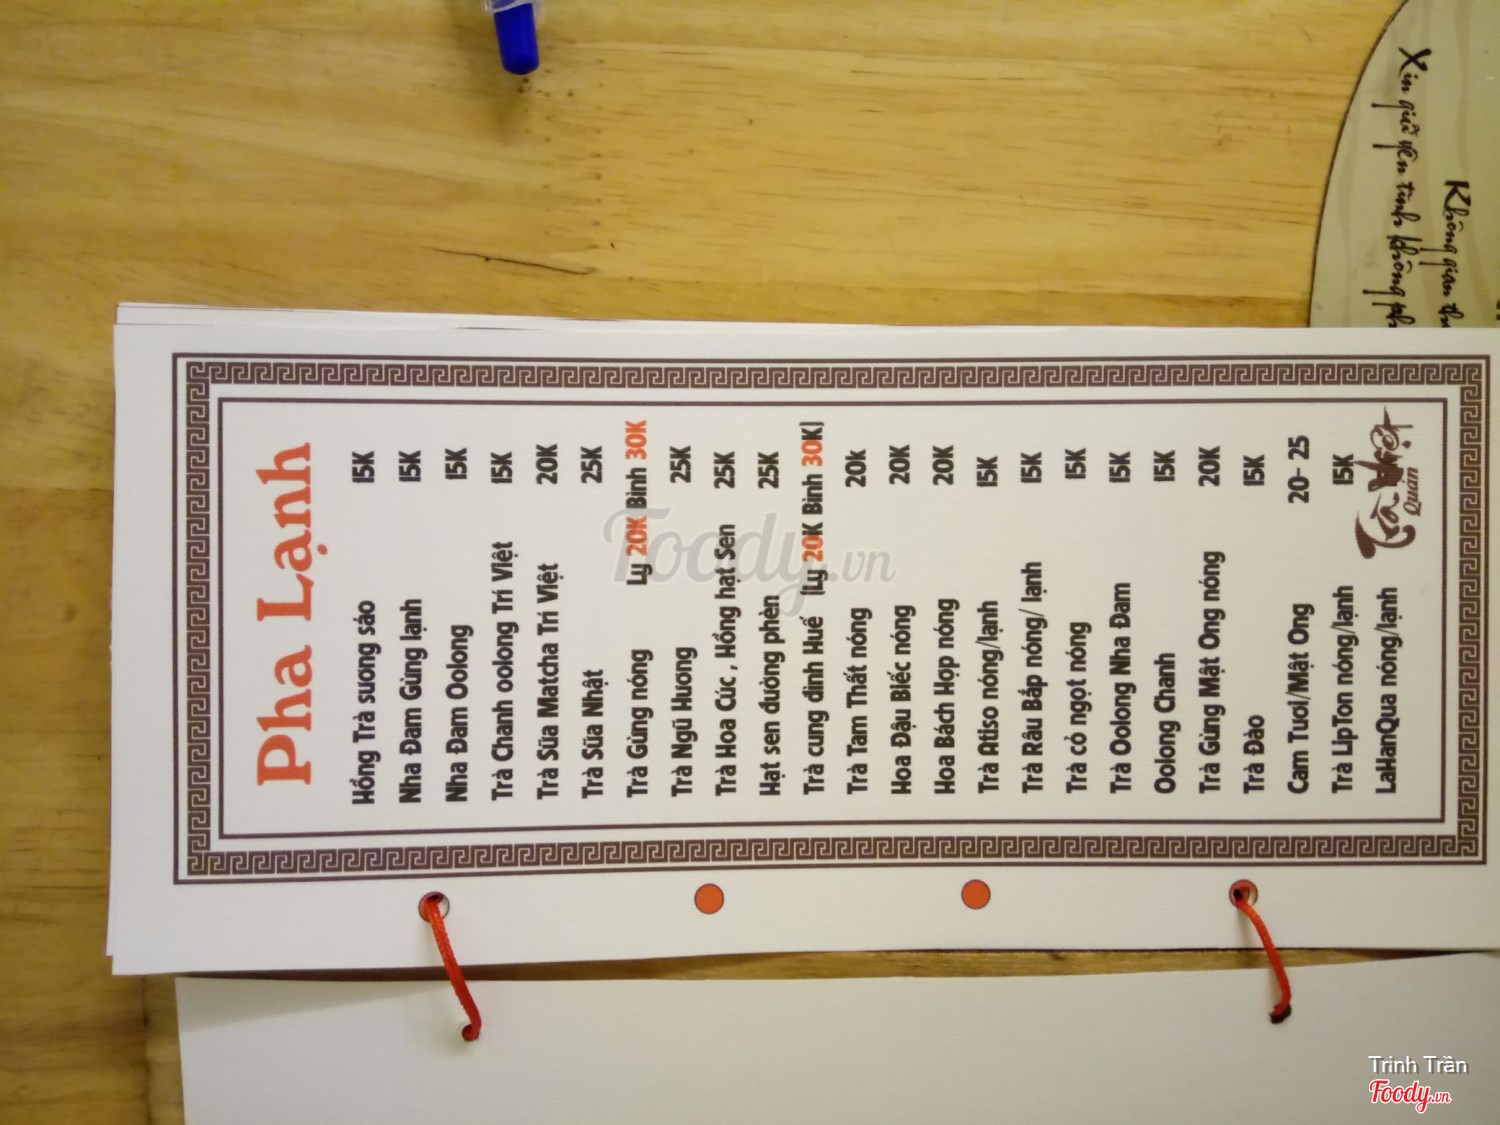 Pha Lạnh
Hồng Trà sương sáo 15K
Nha Đam Gừng lạnh 15K
Nha Đam Oolong 15K
Trà Chanh oolong Trí Việt 15K
Trà Sữa Matcha Trí Việt 20K
Trà Sữa Nhật 25K
Trà Gừng nóng Ly 20K Bình 30K
Trà Ngũ Hương 25K
Trà Hoa Cúc , Hồng hạt Sen 25K
Hạt sen đường phèn 25K
Trà cung đình Huế (Ly 20K Bình 30K)
Trà Tam Thất nóng 20k
Hoa Đậu Biếc nóng 20K
Hoa Bách Hợp nóng 20K
Trà Atiso nóng/lạnh 15K
Trà Râu Bắp nóng/ lạnh 15K
Trà cỏ ngọt nóng 15K
Trà Oolong Nha Đam 15K
Oolong Chanh 15K
Trà Gừng Mật Ong nóng 20K
Trà Đào 15K
Cam Tươi/Mật Ong 20- 25
Trà LipTon nóng/lạnh 15K
LaHanQua nóng/lạnh
Trà Việt
Quán
Xin giữ yên tình không
Không gian
Foody.vn
Trinh Trần
Foody.vn